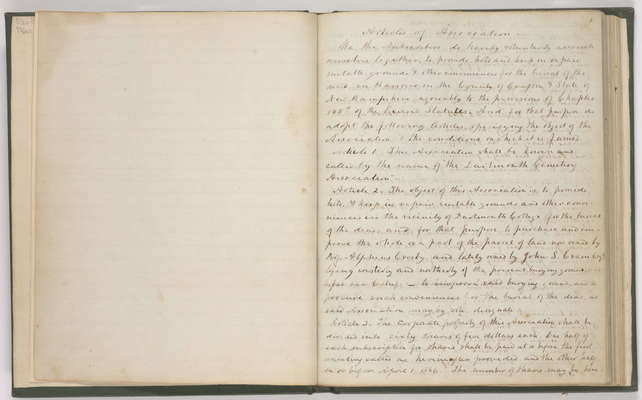 Articles of Association
We the Subscribers do hereby voluntarily associate
ourselves together, to provide, hold and keep in repair
suitable grounds & other conveniences for the burial of the
dead, in Hanover in the County of Grafton & State of
New Hampshire agreeably to the provisions of Chapter
of the Revised Statutes, And for that purpose do
adopt the following Articles, specifying the object of the
Association & the conditions on which it is formed.
Article 1. This Association shall be known and
called by the name of the "Dartmouth Cemetery
Association".
Article 2. The object of this Association is to provide
hold, & keep in repair, suitable grounds and other conveniences
in the vicinity of Dartmouth College for the burial
of the dead, and, for that purpose, to purchase and improve
the whole or a part of the parcel of land now owned by
Prof. Alpheus Crosby, and lately owned by John S. Crane
lying westerly and northerly of the present burying ground
to improve said burying and
provide such conveniences for the burial of the dead, as
said Association may by vote designate.
Article 3. The Corporate property of this Association shall be
divided into sixty shares of five dollars each. One half of
each subscription for shares shall be paid at or before the first
meeting called as hereinafter provided, and the other half
on or before April 1, The number of shares may be